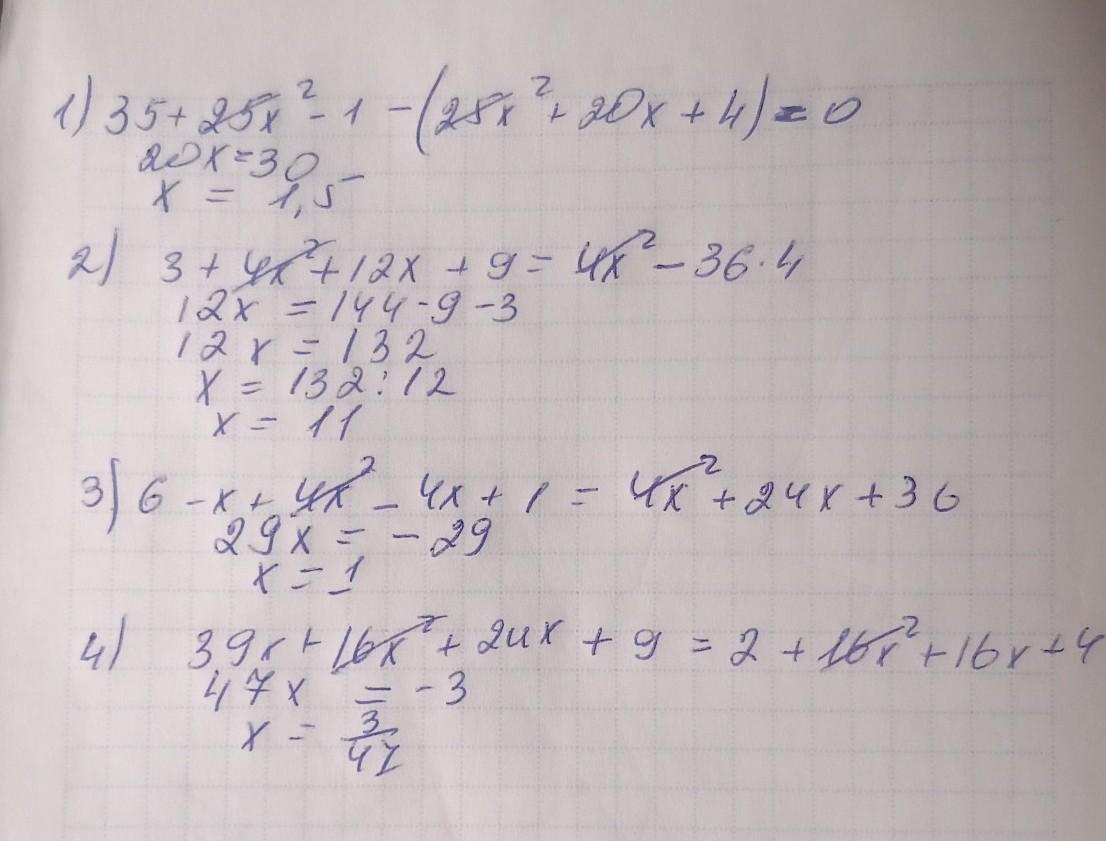 1) 35 + 25x² - 1 - (25x² + 20x + 4) = 0
20x = 30
x = 1,5
2) 3 + 4x² + 12x + 9 = 4x² - 36·4
12x = 144 - 9 - 3
12x = 132
x = 132 : 12
x = 11
3) 6 - x + 4x² - 4x + 1 = 4x² + 24x + 36
29x = - 29
x = 1
4) 39x + 16x² + 24x + 9 = 2 + 16x² + 16x + 4
47x = - 3
x = 3/47